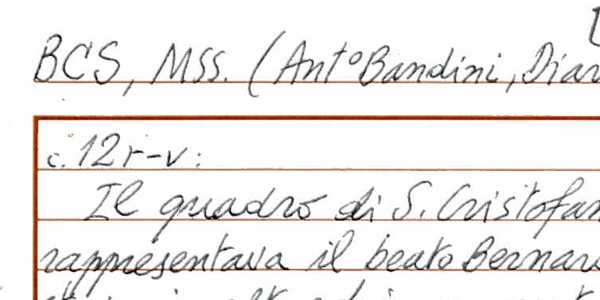 BCS, Mss. (Antº Bandini, Diar
c. 12 r-v:
Il quadro di S. Cristofan
rappresentava il beato Bernar